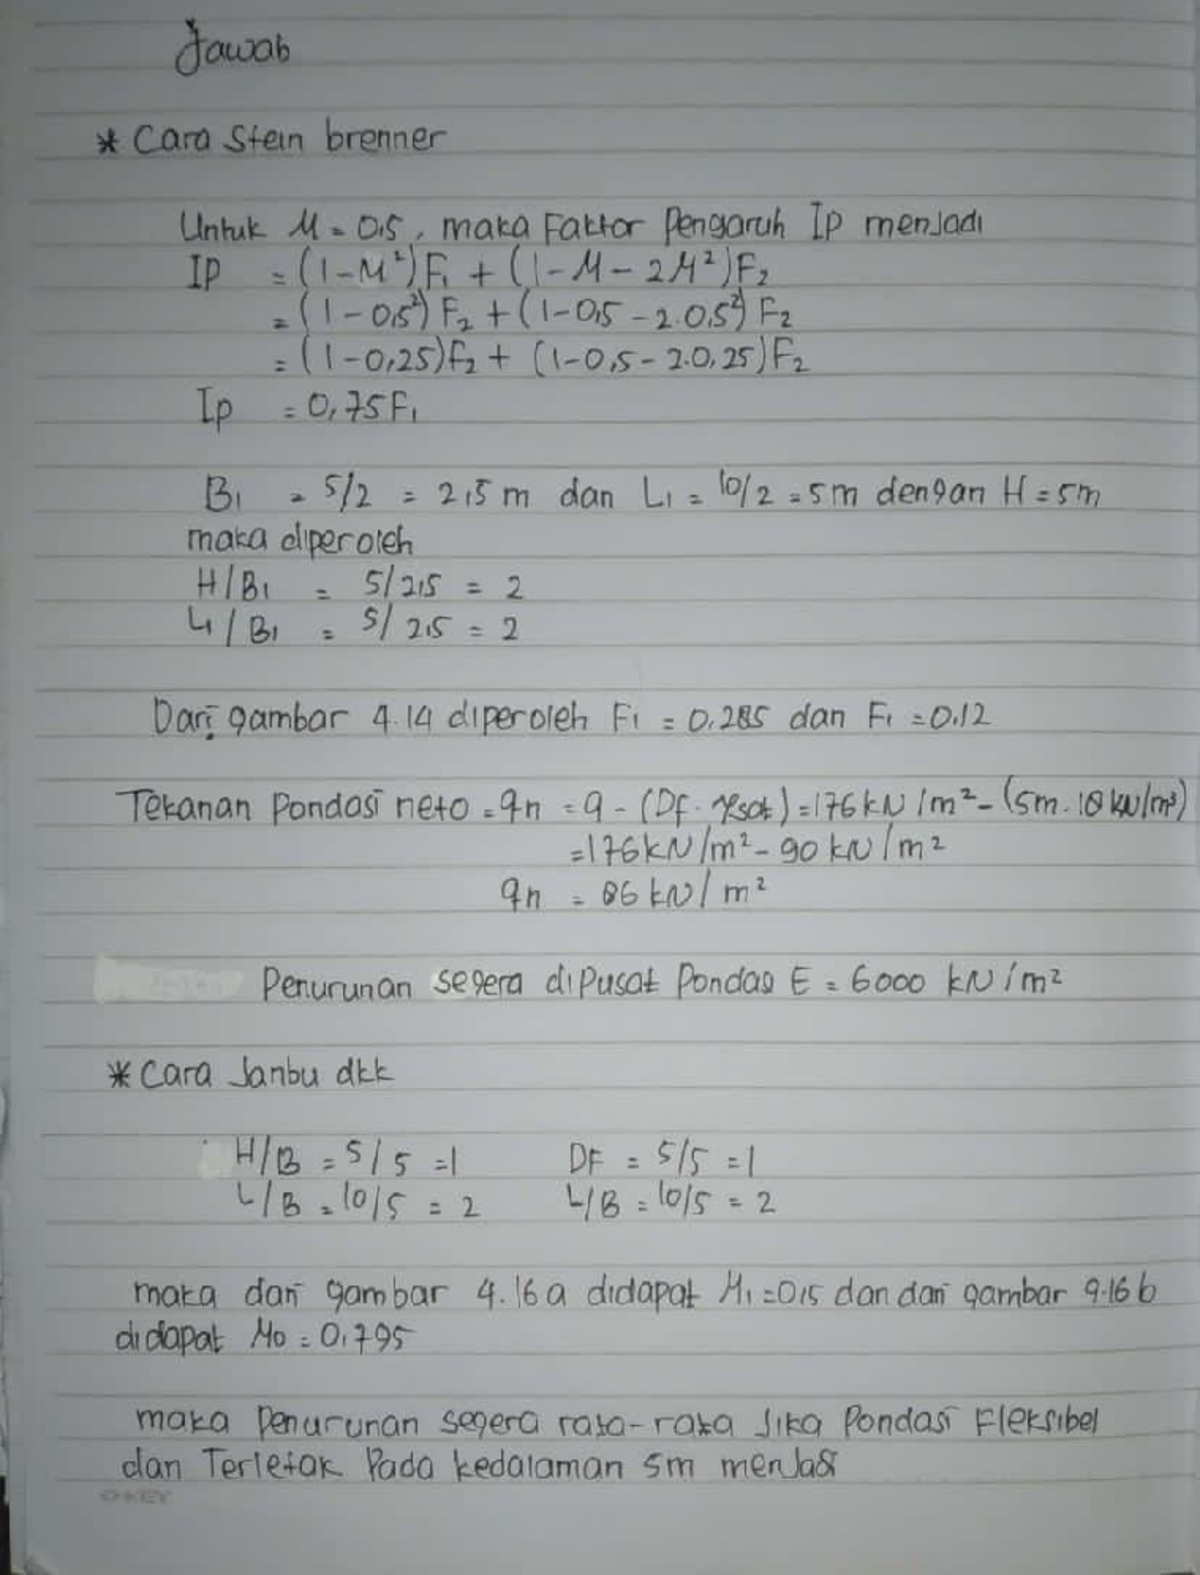 Jawab
* Cara Stein brenner
Untuk μ = 0,5, maka Faktor Pengaruh Ip menjadi
IP = (1-μ²)F₁ + (1-μ-2μ²)F₂
= (1-0,5²) F₂ + (1-0,5-2.0,5²) F₂
= (1-0,25)F₂ + (1-0,5-2.0,25)F₂
Ip = 0,75F₁
B₁ = 5/2 = 2,5 m dan L₁ = 10/2 = 5m dengan H = 5m
maka diperoleh
H/B₁ = 5/2,5 = 2
L₁/B₁ = 5/2,5 = 2
Dari gambar 4.14 diperoleh F₁ = 0.285 dan F₁ = 0.12
Tekanan Pondasi neto = qn = q - (Df . γsat) = 176 kN/m² - (5m . 18 kN/m³)
= 176 kN/m² - 90 kN/m²
qn = 86 kN/m²
Penurunan segera di Pusat Pondas E = 6000 kN/m²
* Cara Janbu dkk
H/B = 5/5 = 1 DF = 5/5 = 1
L/B = 10/5 = 2 L/B = 10/5 = 2
maka dari gambar 4.16 a didapat μ₁ = 0,5 dan dari gambar 4.16 b
didapat μ₀ = 0,795
maka Penurunan segera rata-rata Jika Pondasi Fleksibel
dan Terletak Pada kedalaman 5m menJadi